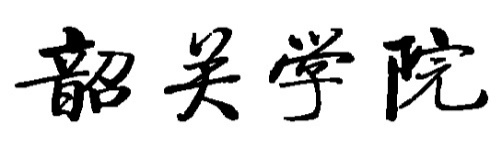 韶关学院